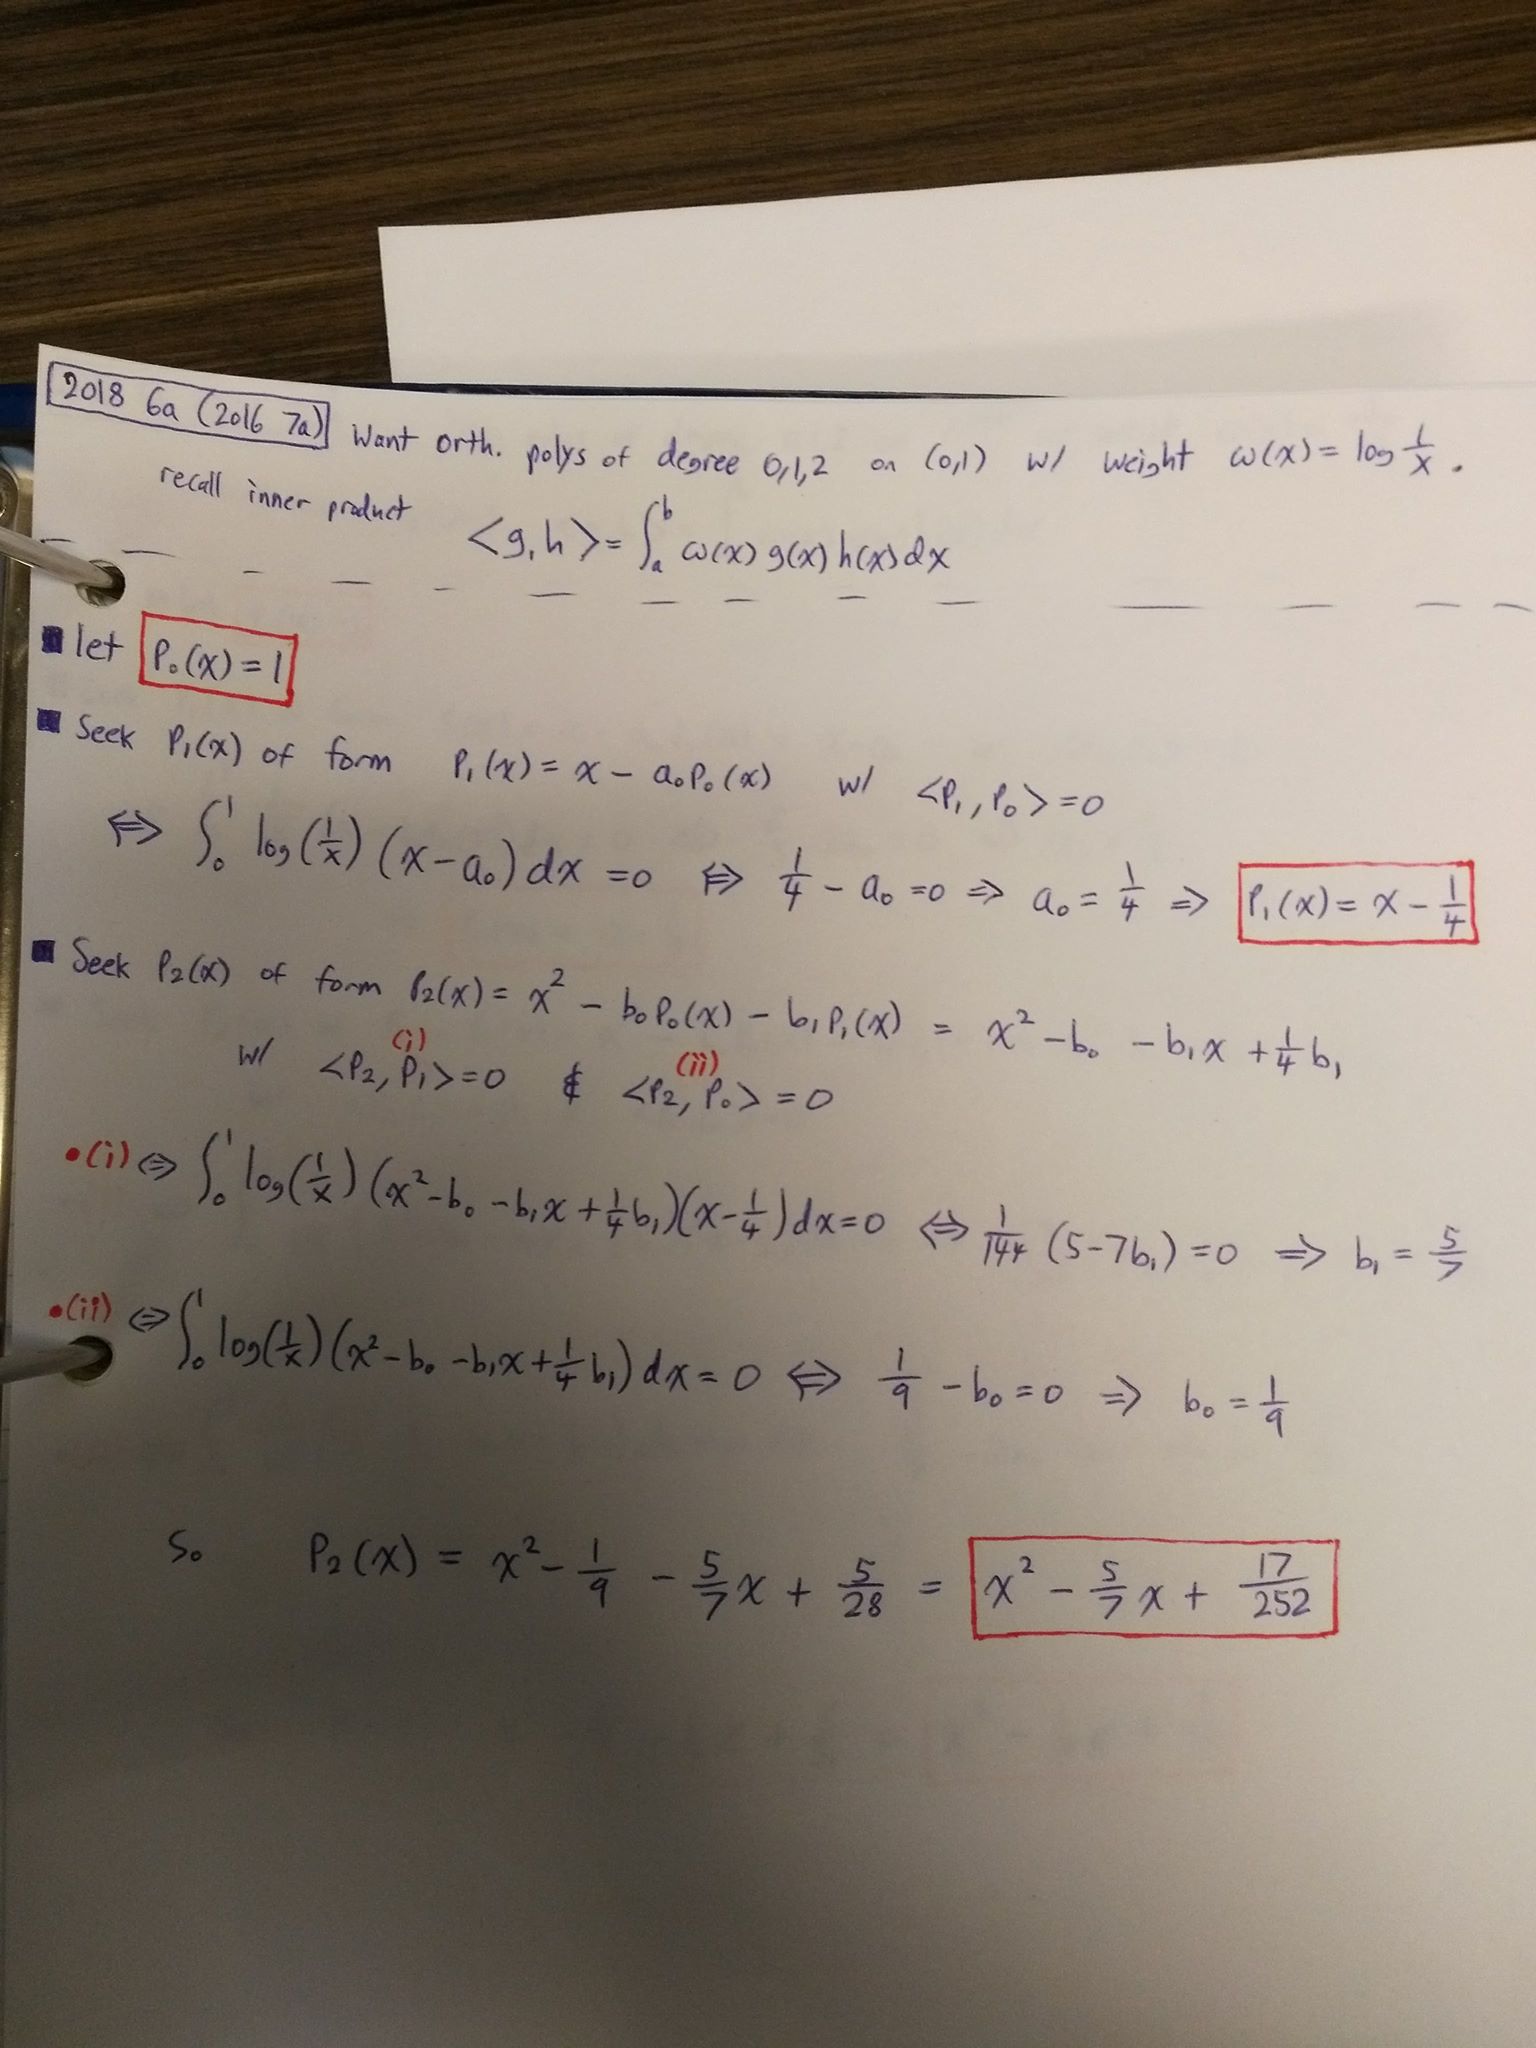 2018 6a (2016 7a) Want orth. polys of degree 0,1,2 on (0,1) w/ weight ω(x) = log 1/x .
recall inner product <g,h> = ∫_a^b ω(x) g(x) h(x) dx
■ let P₀(x) = 1
■ Seek P₁(x) of form P₁(x) = x − a₀P₀(x) w/ <P₁, P₀> = 0
⇔ ∫₀¹ log(1/x) (x − a₀) dx = 0 ⇔ 1/4 − a₀ = 0 ⇒ a₀ = 1/4 ⇒ P₁(x) = x − 1/4
■ Seek P₂(x) of form P₂(x) = x² − b₀P₀(x) − b₁P₁(x) = x² − b₀ − b₁x + 1/4 b₁
w/ (i) <P₂, P₁> = 0 & (ii) <P₂, P₀> = 0
• (i) ⇔ ∫₀¹ log(1/x) (x² − b₀ − b₁x + 1/4 b₁)(x − 1/4) dx = 0 ⇔ 1/144 (5 − 7b₁) = 0 ⇒ b₁ = 5/7
• (ii) ⇔ ∫₀¹ log(1/x) (x² − b₀ − b₁x + 1/4 b₁) dx = 0 ⇔ 1/9 − b₀ = 0 ⇒ b₀ = 1/9
So P₂(x) = x² − 1/9 − 5/7 x + 5/28 = x² − 5/7 x + 17/252